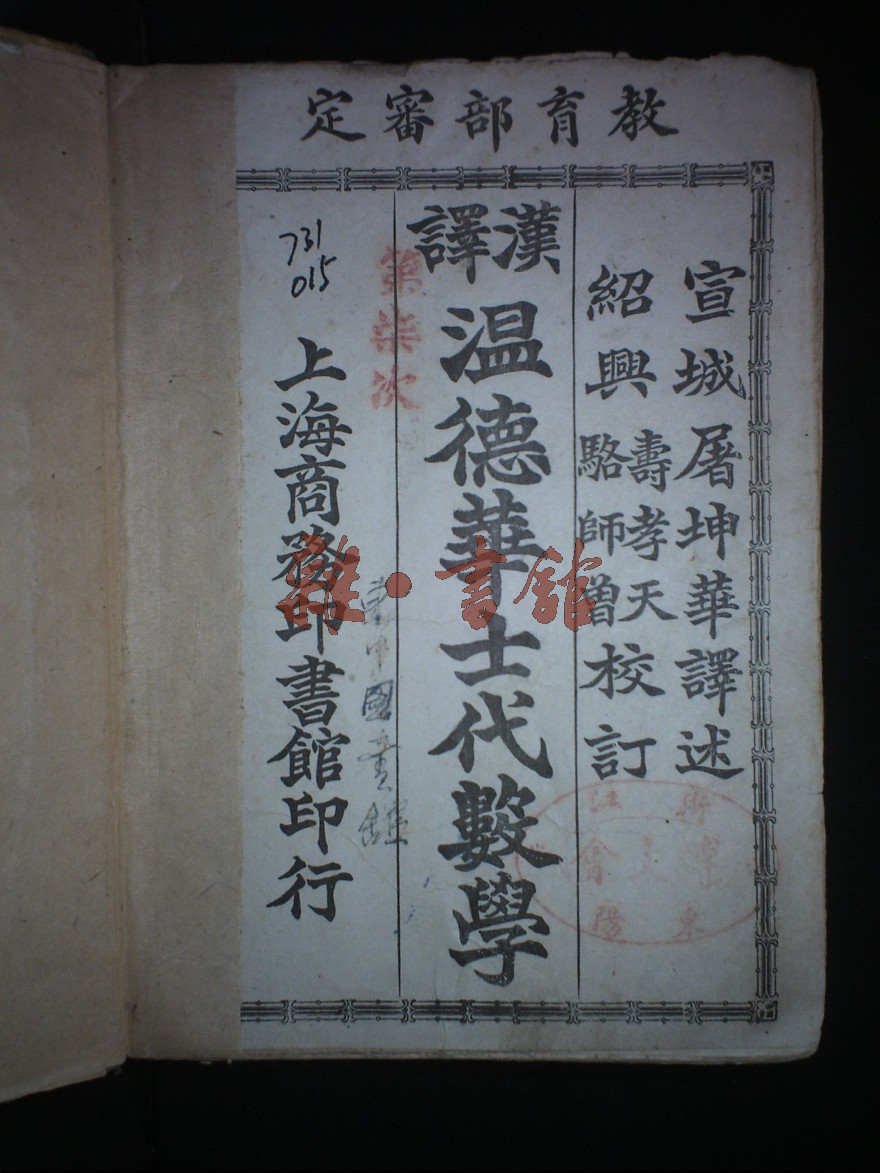 教育部審定
宣城屠坤華譯述
紹興
壽孝天
駱師曾
校訂
漢譯
温德華士代數學
上海商務印書館印行
731
015
第柒次
雜·書館
中國書館
浙江
東陽
會